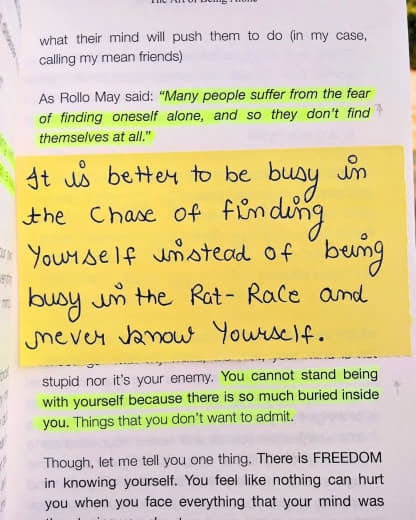 The Art of Being Alone
what their mind will push them to do (in my case,
calling my mean friends)
As Rollo May said: “Many people suffer from the fear
of finding oneself alone, and so they don't find
themselves at all.”
It is better to be busy in
the Chase of finding
Yourself instead of being
busy in the Rat-Race and
never know Yourself.
stupid nor it's your enemy. You cannot stand being
with yourself because there is so much buried inside
you. Things that you don't want to admit.
Though, let me tell you one thing. There is FREEDOM
in knowing yourself. You feel like nothing can hurt
you when you face everything that your mind was